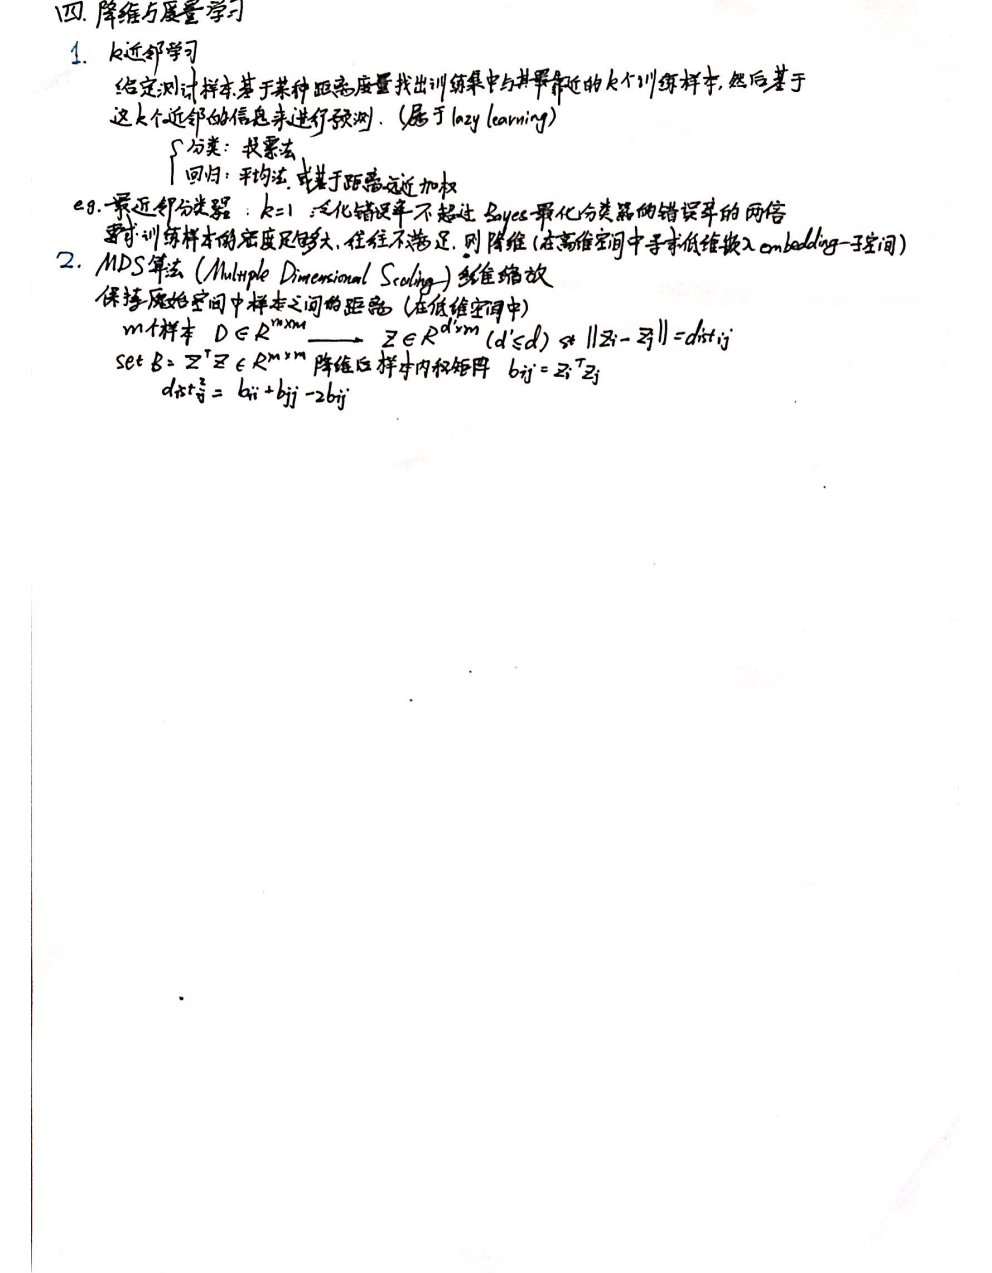 四. 降维与度量学习
1. k近邻学习
给定测试样本,基于某种距离度量找出训练集中与其最靠近的k个训练样本,然后基于
这k个近邻的信息来进行预测. (属于lazy learning)
分类: 投票法
回归: 平均法,或基于距离远近加权
eg. 最近邻分类器: k=1 泛化错误率不超过Bayes最优分类器的错误率的两倍
要求:训练样本的密度足够大,往往不满足. 则降维(在高维空间中寻求低维嵌入embedding-子空间)
2. MDS算法 (Multiple Dimensional Scaling) 多维缩放
保持原始空间中样本之间的距离 (在低维空间中)
m个样本 D∈R^{m×m} ⟶ Z∈R^{d'×m} (d'≤d) st ||zi-zj||=distij
set B=Z^TZ∈R^{m×m} 降维后样本内积矩阵 bij=zi^Tzj
dist²ij = bii+bjj-2bij